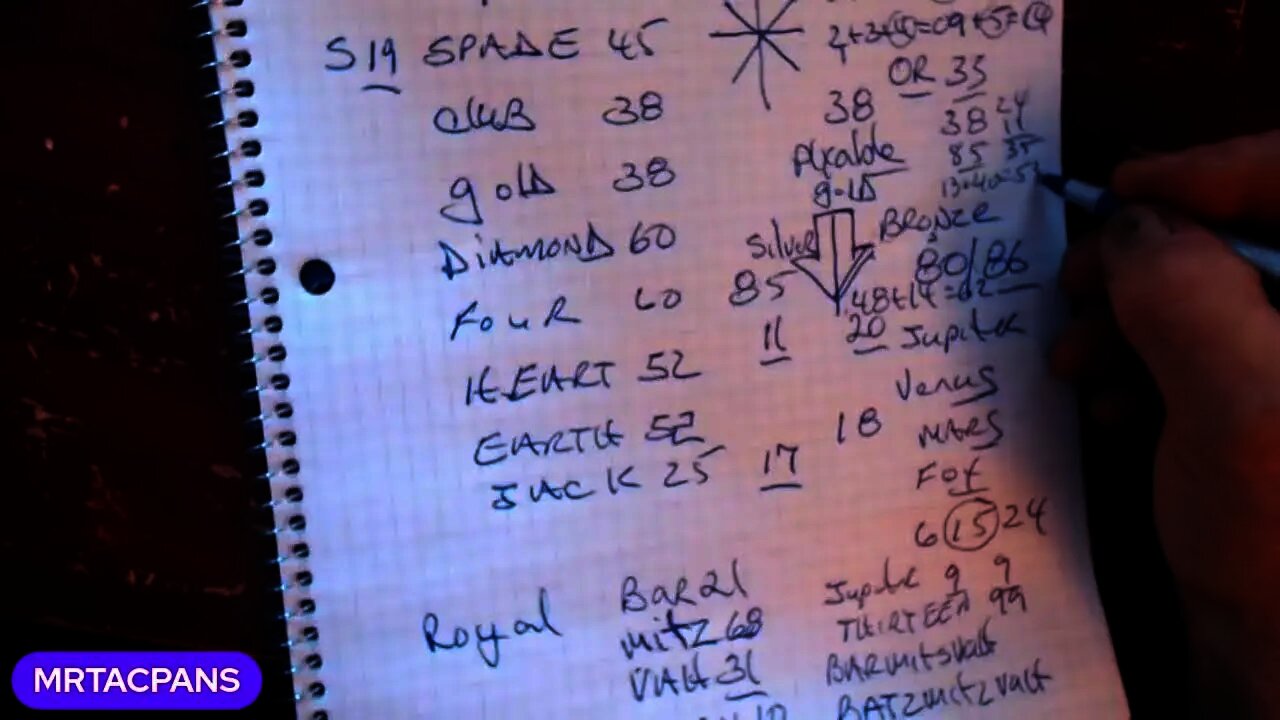 2+3+4=09+5=14
S19 SPADE 45
OR 35
CLUB 38
38
38 24
11
85 35
GOLD 38
Alcalde
GOLD
13+40=5
DIAMOND 60
Silver
BRONZE
80/86
FOUR 60 85
48+14=62
HEART 52 11 20 Jupiter
Venus
EARTH 52 18 MARS
JACK 25 17
Fox
6 15 24
Royal BAR 21
Jupiter 9 9
MITZ 68
THIRTEEN 99
VAH 31
BARMITSVAH
BATZMITZVAH
MRTACPANS